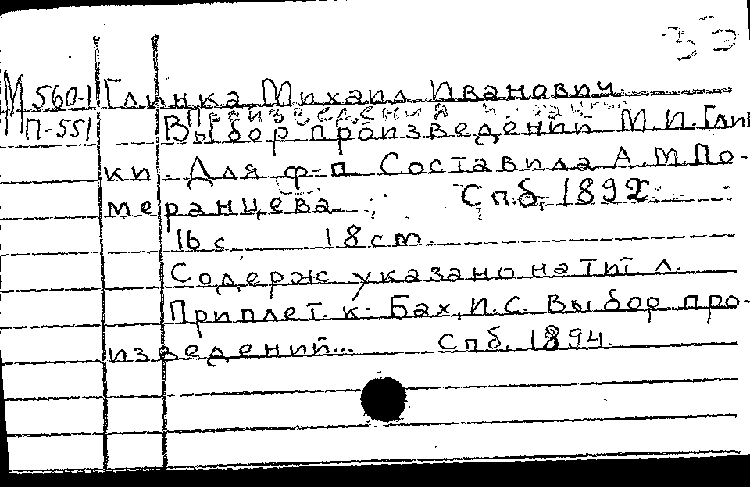 33
М 560-1 Глинка, Михаил Иванович
Произведения
П-551 Выбор произведений М.И. Глин
ки. Для ф-п Составила А.М. По-
меранцева. Спб, 1892.
16 с. 18 cm.
Содерж указано на тит л.
Приплет. к: Бах, И.С. Выбор про-
изведений... Спб. 1894.